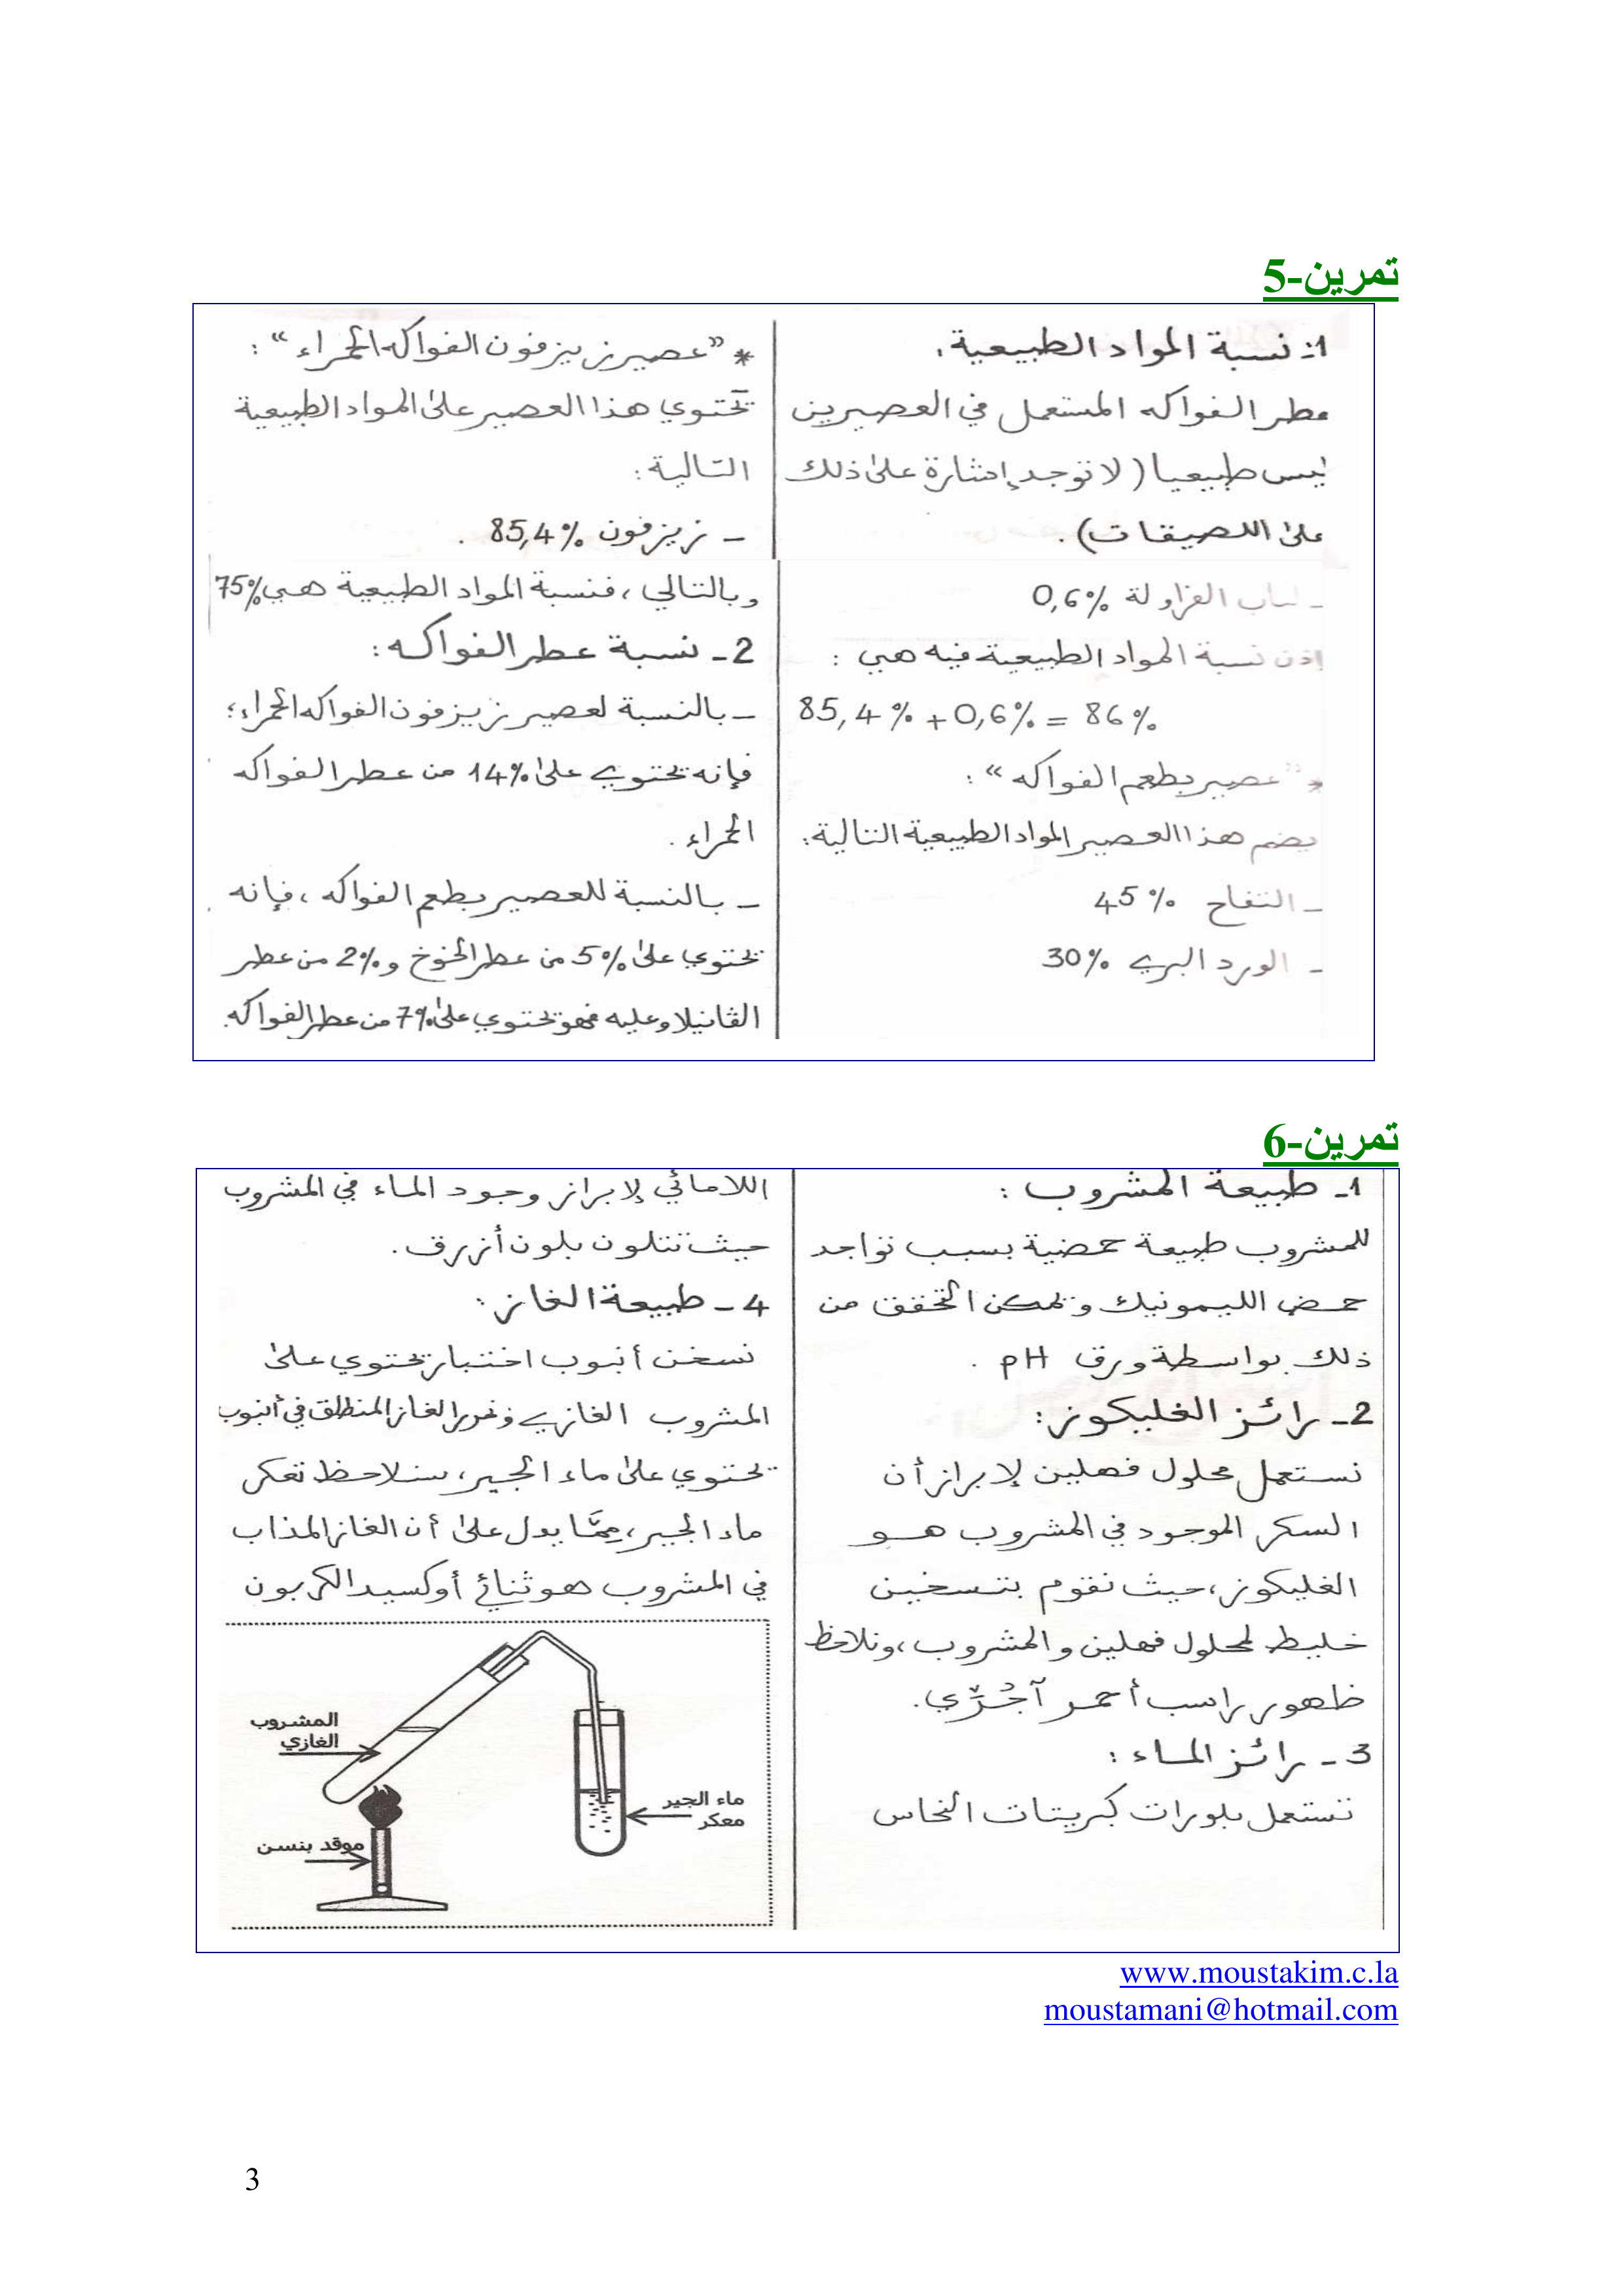 تمرين-5
1- نسبة المواد الطبيعية.
عطر الفواكه المستعمل في العصيرين
ليس طبيعيا (لا توجد إشارة على ذلك
على اللصيقات).
* "عصير زيزفون الفواكه الحمراء" :
يحتوي هذا العصير على المواد الطبيعية
التالية:
- زيزفون 85,4% .
- لباب الفراولة 0,6%
إذن نسبة المواد الطبيعية فيه هي :
85,4% + 0,6% = 86%
* "عصير بطعم الفواكه" :
يضم هذا العصير المواد الطبيعية التالية:
- التفاح 45%
- الورد البري 30%
وبالتالي، فنسبة المواد الطبيعية هي 75%
2- نسبة عطر الفواكه:
- بالنسبة لعصير زيزفون الفواكه الحمراء؛
فإنه يحتوي على 14% من عطر الفواكه
الحمراء .
- بالنسبة للعصير بطعم الفواكه، فإنه
يحتوي على 5% من عطر الخوخ و 2% من عطر
الڤانيلا وعليه فهو يحتوي على 7% من عطر الفواكه.
تمرين-6
1- طبيعة المشروب :
للمشروب طبيعة حمضية بسبب تواجد
حمض الليمونيك ويمكن التحقق من
ذلك بواسطة ورق pH .
2- رائز الغليكوز:
نستعمل محلول فهلين لإبراز أن
السكر الموجود في المشروب هو
الغليكوز، حيث نقوم بتسخين
خليط لمحلول فهلين والمشروب، ونلاحظ
ظهور راسب أحمر آجُرّي.
3- رائز الماء :
تستعمل بلورات كبريتات النحاس
اللامائي لإبراز وجود الماء في المشروب
حيث تتلون بلون أزرق.
4- طبيعة الغاز:
نسخن أنبوب اختبار يحتوي على
المشروب الغازي ونمرر الغاز المنطلق في أنبوب
يحتوي على ماء الجير، سنلاحظ تعكر
ماء الجير، ممّا يدل على أن الغاز المذاب
في المشروب هو ثنائي أوكسيد الكربون
المشروب
الغازي
ماء الجير
معكر
موقد بنسن
www.moustakim.c.la
moustamani@hotmail.com
3